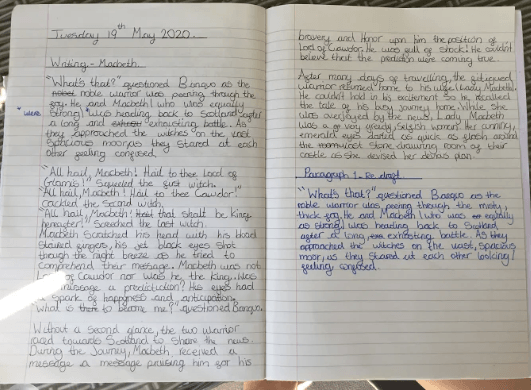 Tuesday 19th May 2020.
Writing - Macbeth
"What's that?" questioned Banquo as the
noble warrior was peering through the
fog. He and Macbeth (who was equally
"were strong) was heading back to Scotland after
a long and exhausting battle. As
they approached the witches on the vast
spacious moor, as they stared at each
other feeling confused.
"All hail, Macbeth! Hail to thee Lord of
Glamis!" squealed the first witch.
"All hail, Macbeth! Hail to thee Cawdor!"
cackled the second witch.
"All hail, Macbeth! that shalt be King
hereafter!" Screeched the last witch.
Macbeth scratched his head with his blood
stained fingers, his jet black eyes shot
through the night breeze as he tried to
comprehend their message. Macbeth was not
Lord of Cawdor nor was he, the King. Was
message a prediction? His eyes had
a spark of happiness and anticipation.
What is to become me?" questioned Banquo.
Without a second glance, the two warrior
raced towards Scotland to share the news.
During the Journey, Macbeth received a
message a message praising him for his
bravery and Honor upon him the position of
Lord of Cawdor. He was full of shock! He couldn't
believe that the prediction were coming true.
After many days of travelling, the
warrior returned home to his wife (Lady Macbeth).
He couldn't hold in his excitement so he recalled
the tale of his busy journey home. While she
was overjoyed by the news, Lady Macbeth
was a very greedy, selfish women. Her cunning,
emerald eyes darted as quick as flash around
the stone drawing room of their
castle as she devised her devious plan.
Paragraph 1 - Re. draft
"What's that?" questioned Banquo as the
noble warrior was peering through the misty,
thick fog. He and Macbeth (who was equally
as strong) was heading back to Scotland
after a long, exhausting battle. As they
approached the witches on the vast, spacious
moor, as they stared at each other looking
feeling confused.